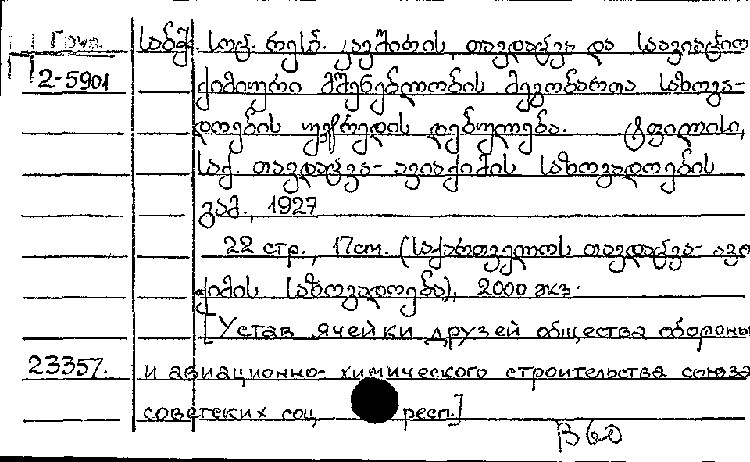 საბჭ. სოც. რესპ. კავშირის თავდაცვა და საავიაციო
2-5901 ქიმიური მშენებლობის მეგობართა საზოგა-
დოების უჯრედის დებულება. ტფილისი,
საქ. თავდაცვა-ავიაქიმის საზოგადოების
გამ., 1927
22 стр., 17см. (საქართველოს თავდაცვა- ავია
ქიმის საზოგადოება), 2000 экз.
[Устав ячейки друзей общества обороны
23357. и авиационно-химического строительства союза
советских соц респ.]
В60